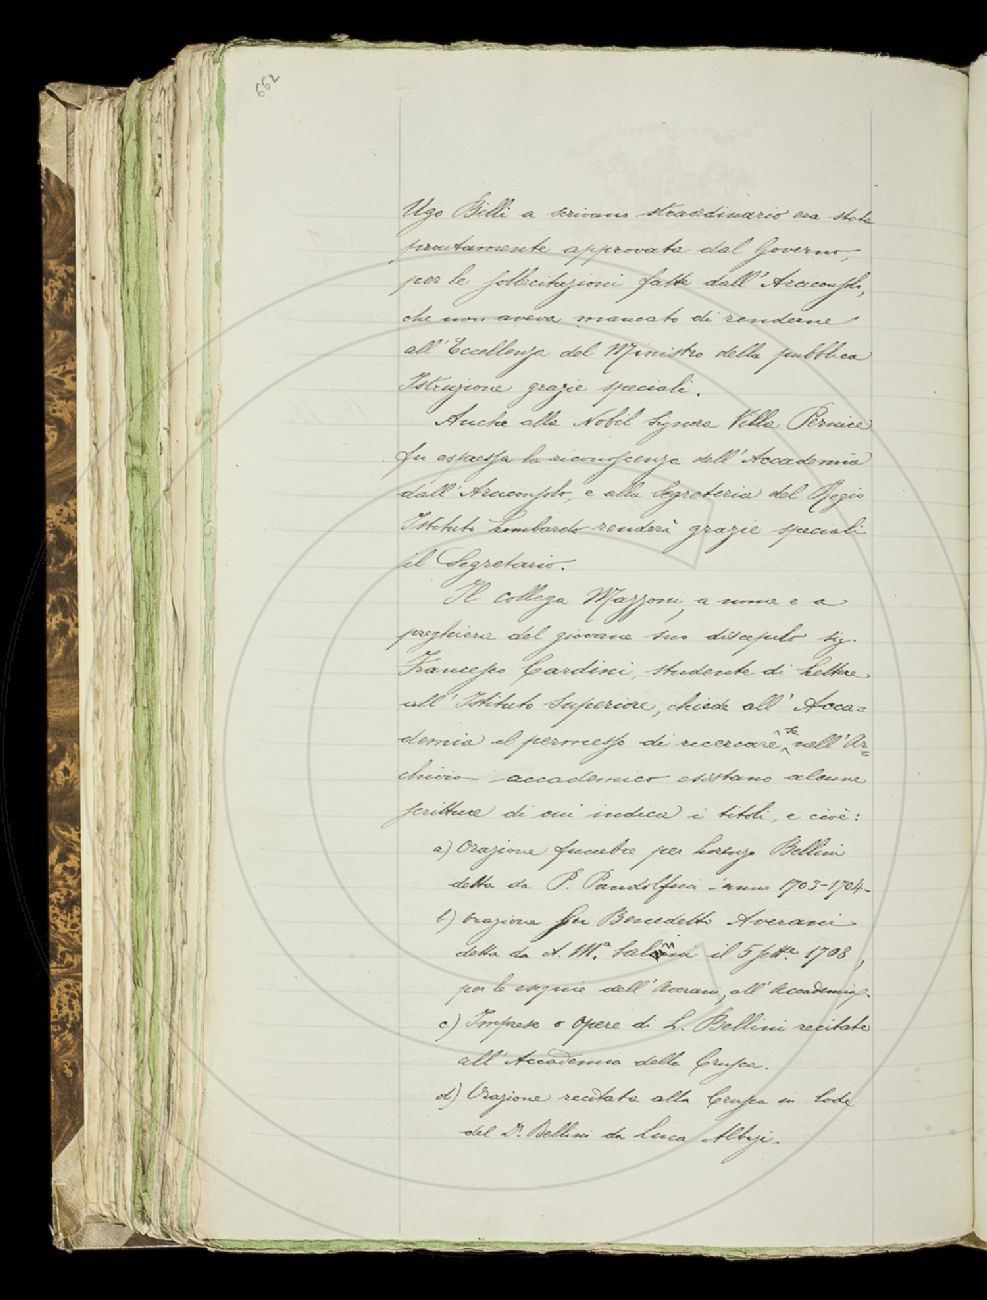 662
Ugo Billi a scrivano straordinario era stata
prontamente approvata dal Governo,
per le sollecitazioni fatte dall'Arciconsolo,
che non aveva mancato di renderne
all'Eccellenza del Ministro della pubblica
Istruzione grazie speciali.
Anche alla Nobil Signora Villa Pernice
fu espressa la riconoscenza dell'Accademia
dall'Arciconsolo, e alla Segreteria del Regio
Istituto Lombardo renderà grazie speciali
il Segretario.
Il collega Mazzoni, a nome e a
preghiera del giovane suo discepolo sig.
Francesco Cardini, studente di Lettere
all'Istituto Superiore, chiede all'Acca=
demia il permesso di ricercare se nell'Ar=
chivio accademico esistano alcune
scritture di cui indica i titoli, e cioè:
a) Orazione funebre per Lorenzo Bellini
detta da P. Pandolfini - anno 1703-1704-
b) Orazione per Benedetto Averani
detta da A. M.ª Salvini il 5 7tt.e 1708,
per le esequie dell'Averani, all'Accademia.
c) Imprese o Opere di L. Bellini recitate
all'Accademia della Crusca.
d) Orazione recitata alla Crusca in lode
del D.r Bellini da Luca Albizi.